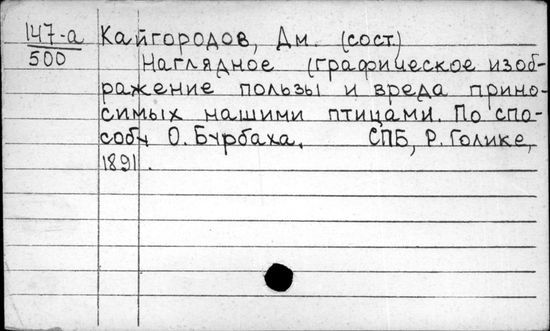 147-а
500
Кайгородов, Дм. (сост.)
Наглядное (графическое изоб-
ражение пользы и вреда прино-
симых нашими птицами. По спо-
собу О. Бурбаха. СПБ, Р. Голике,
1891.